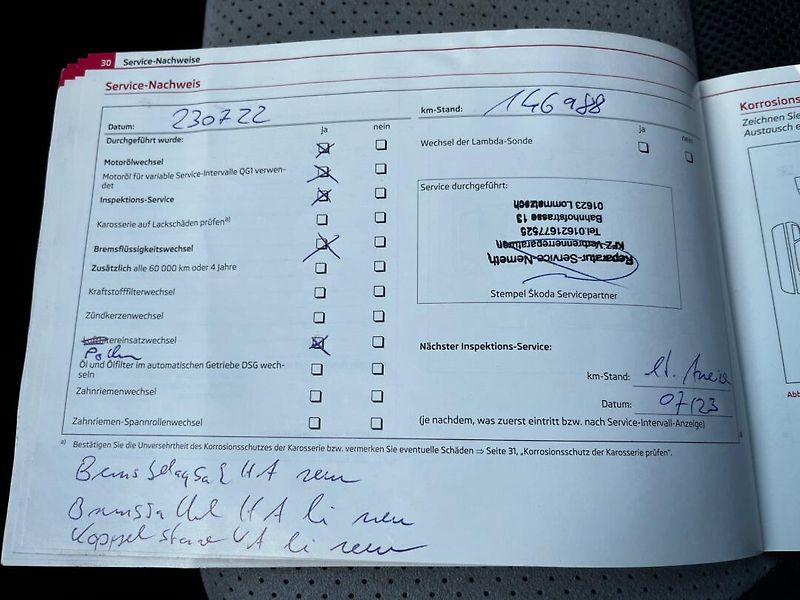 30 Service-Nachweise
Service-Nachweis
Datum: 230722
km-Stand: 146988
ja nein
ja nein
Durchgeführt wurde:
Wechsel der Lambda-Sonde
Motorölwechsel
Motoröl für variable Service-Intervalle QG1 verwen-
det
Inspektions-Service
Karosserie auf Lackschäden prüfen a)
Bremsflüssigkeitswechsel
Zusätzlich alle 60 000 km oder 4 Jahre
Kraftstofffilterwechsel
Zündkerzenwechsel
Luftfiltereinsatzwechsel
Pollen
Öl und Ölfilter im automatischen Getriebe DSG wech-
seln
Zahnriemenwechsel
Zahnriemen-Spannrollenwechsel
Service durchgeführt:
Reparatur-Service-Nemeth
KFZ-Verbrennerreparaturen
Tel.01621677525
Bahnhofstrasse 13
01623 Lommatzsch
Stempel Škoda Servicepartner
Nächster Inspektions-Service:
km-Stand: lt. Anzeige
Datum: 07/23
(je nachdem, was zuerst eintritt bzw. nach Service-Intervall-Anzeige)
a) Bestätigen Sie die Unversehrtheit des Korrosionsschutzes der Karosserie bzw. vermerken Sie eventuelle Schäden ⇒ Seite 31, „Korrosionsschutz der Karosserie prüfen".
HA neu
HA li neu
Koppelstange VA li neu
Korrosions
Zeichnen Sie
Austausch e
Abb